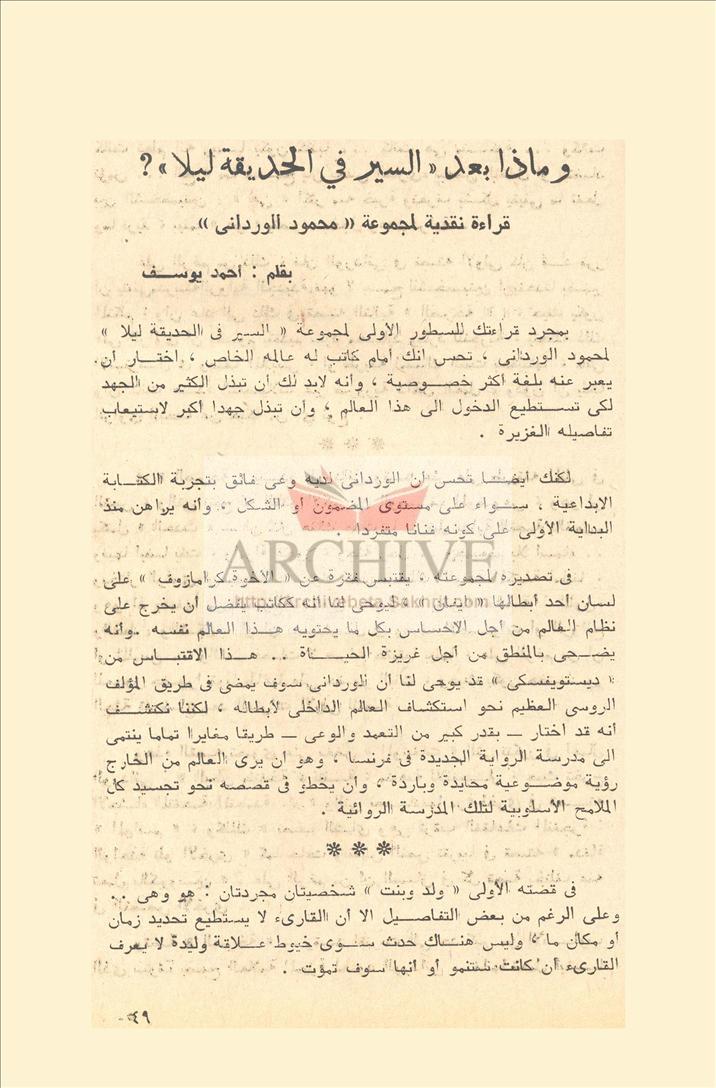 وماذا بعد « السير في الحديقة ليلا » ؟
قراءة نقدية لمجموعة « محمود الوردانى »
بقلم : أحمد يوسف
بمجرد قراءتك للسطور الأولى لمجموعة « السير فى الحديقة ليلا »
لمحمود الوردانى ، تحس انك أمام كاتب له عالمه الخاص ، اختار أن
يعبر عنه بلغة أكثر خصوصية ، وأنه لابد لك أن تبذل الكثير من الجهد
لكى تستطيع الدخول الى هذا العالم ، وأن تبذل جهدا أكبر لاستيعاب
تفاصيله الغزيرة .
لكنك أيضا تحس أن الوردانى لديه وعى فائق بتجربة الكتابة
الابداعية ، سواء على مستوى المضمون أو الشكل ، وأنه يراهن منذ
البداية الأولى على كونه فنانا متفردا .
ARCHIVE
فى تصديره لمجموعته ، يقتبس فقرة عن « الأخوة كرامازوف » على
لسان أحد أبطالها « ايفان » ليوحى لنا انه ككاتب يفضل أن يخرج على
نظام العالم من أجل الاحساس بكل ما يحتويه هذا العالم نفسه . وأنه
يضحى بالمنطق من أجل غريزة الحياة .. هذا الاقتباس من
« ديستويفسكى » قد يوحى لنا أن الوردانى سوف يمضى فى طريق المؤلف
الروسى العظيم نحو استكشاف العالم الداخلى لأبطاله ، لكننا نكتشف
أنه قد اختار ــ بقدر كبير من التعمد والوعى ــ طريقا مغايرا تماما ينتمى
الى مدرسة الرواية الجديدة فى فرنسا ، وهو ان يرى العالم من الخارج
رؤية موضوعية محايدة وباردة ، وأن يخطو فى قصصه نحو تجسيد كل
الملامح الأسلوبية لتلك المدرسة الروائية .
* * *
فى قصته الأولى « ولد وبنت » شخصيتان مجردتان : هو وهى ..
وعلى الرغم من بعض التفاصيل الا أن القارىء لا يستطيع تحديد زمان
أو مكان ما ، وليس هناك حدث سوى خيوط علاقة وليدة لا يعرف
القارىء أن كانت ستنمو أو انها سوف تموت .
٤٩